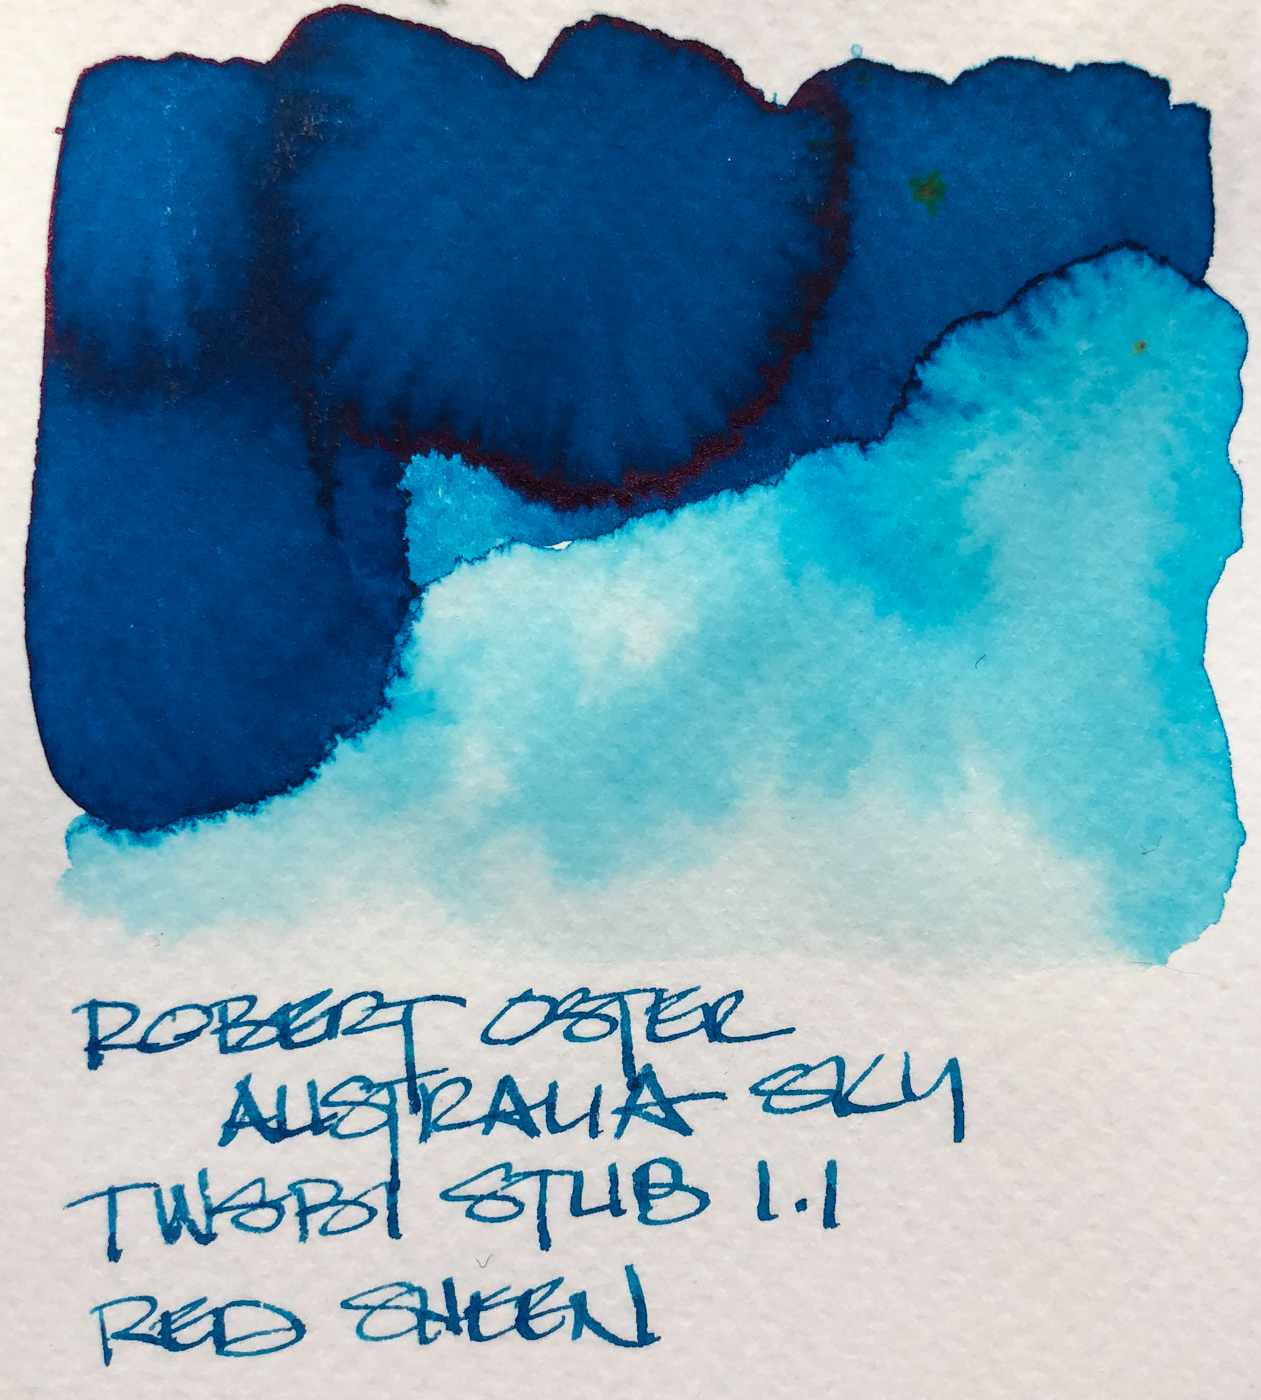 ROBERT OSTER
AUSTRALIA SKY
TWSBI STUB 1.1
RED SHEEN